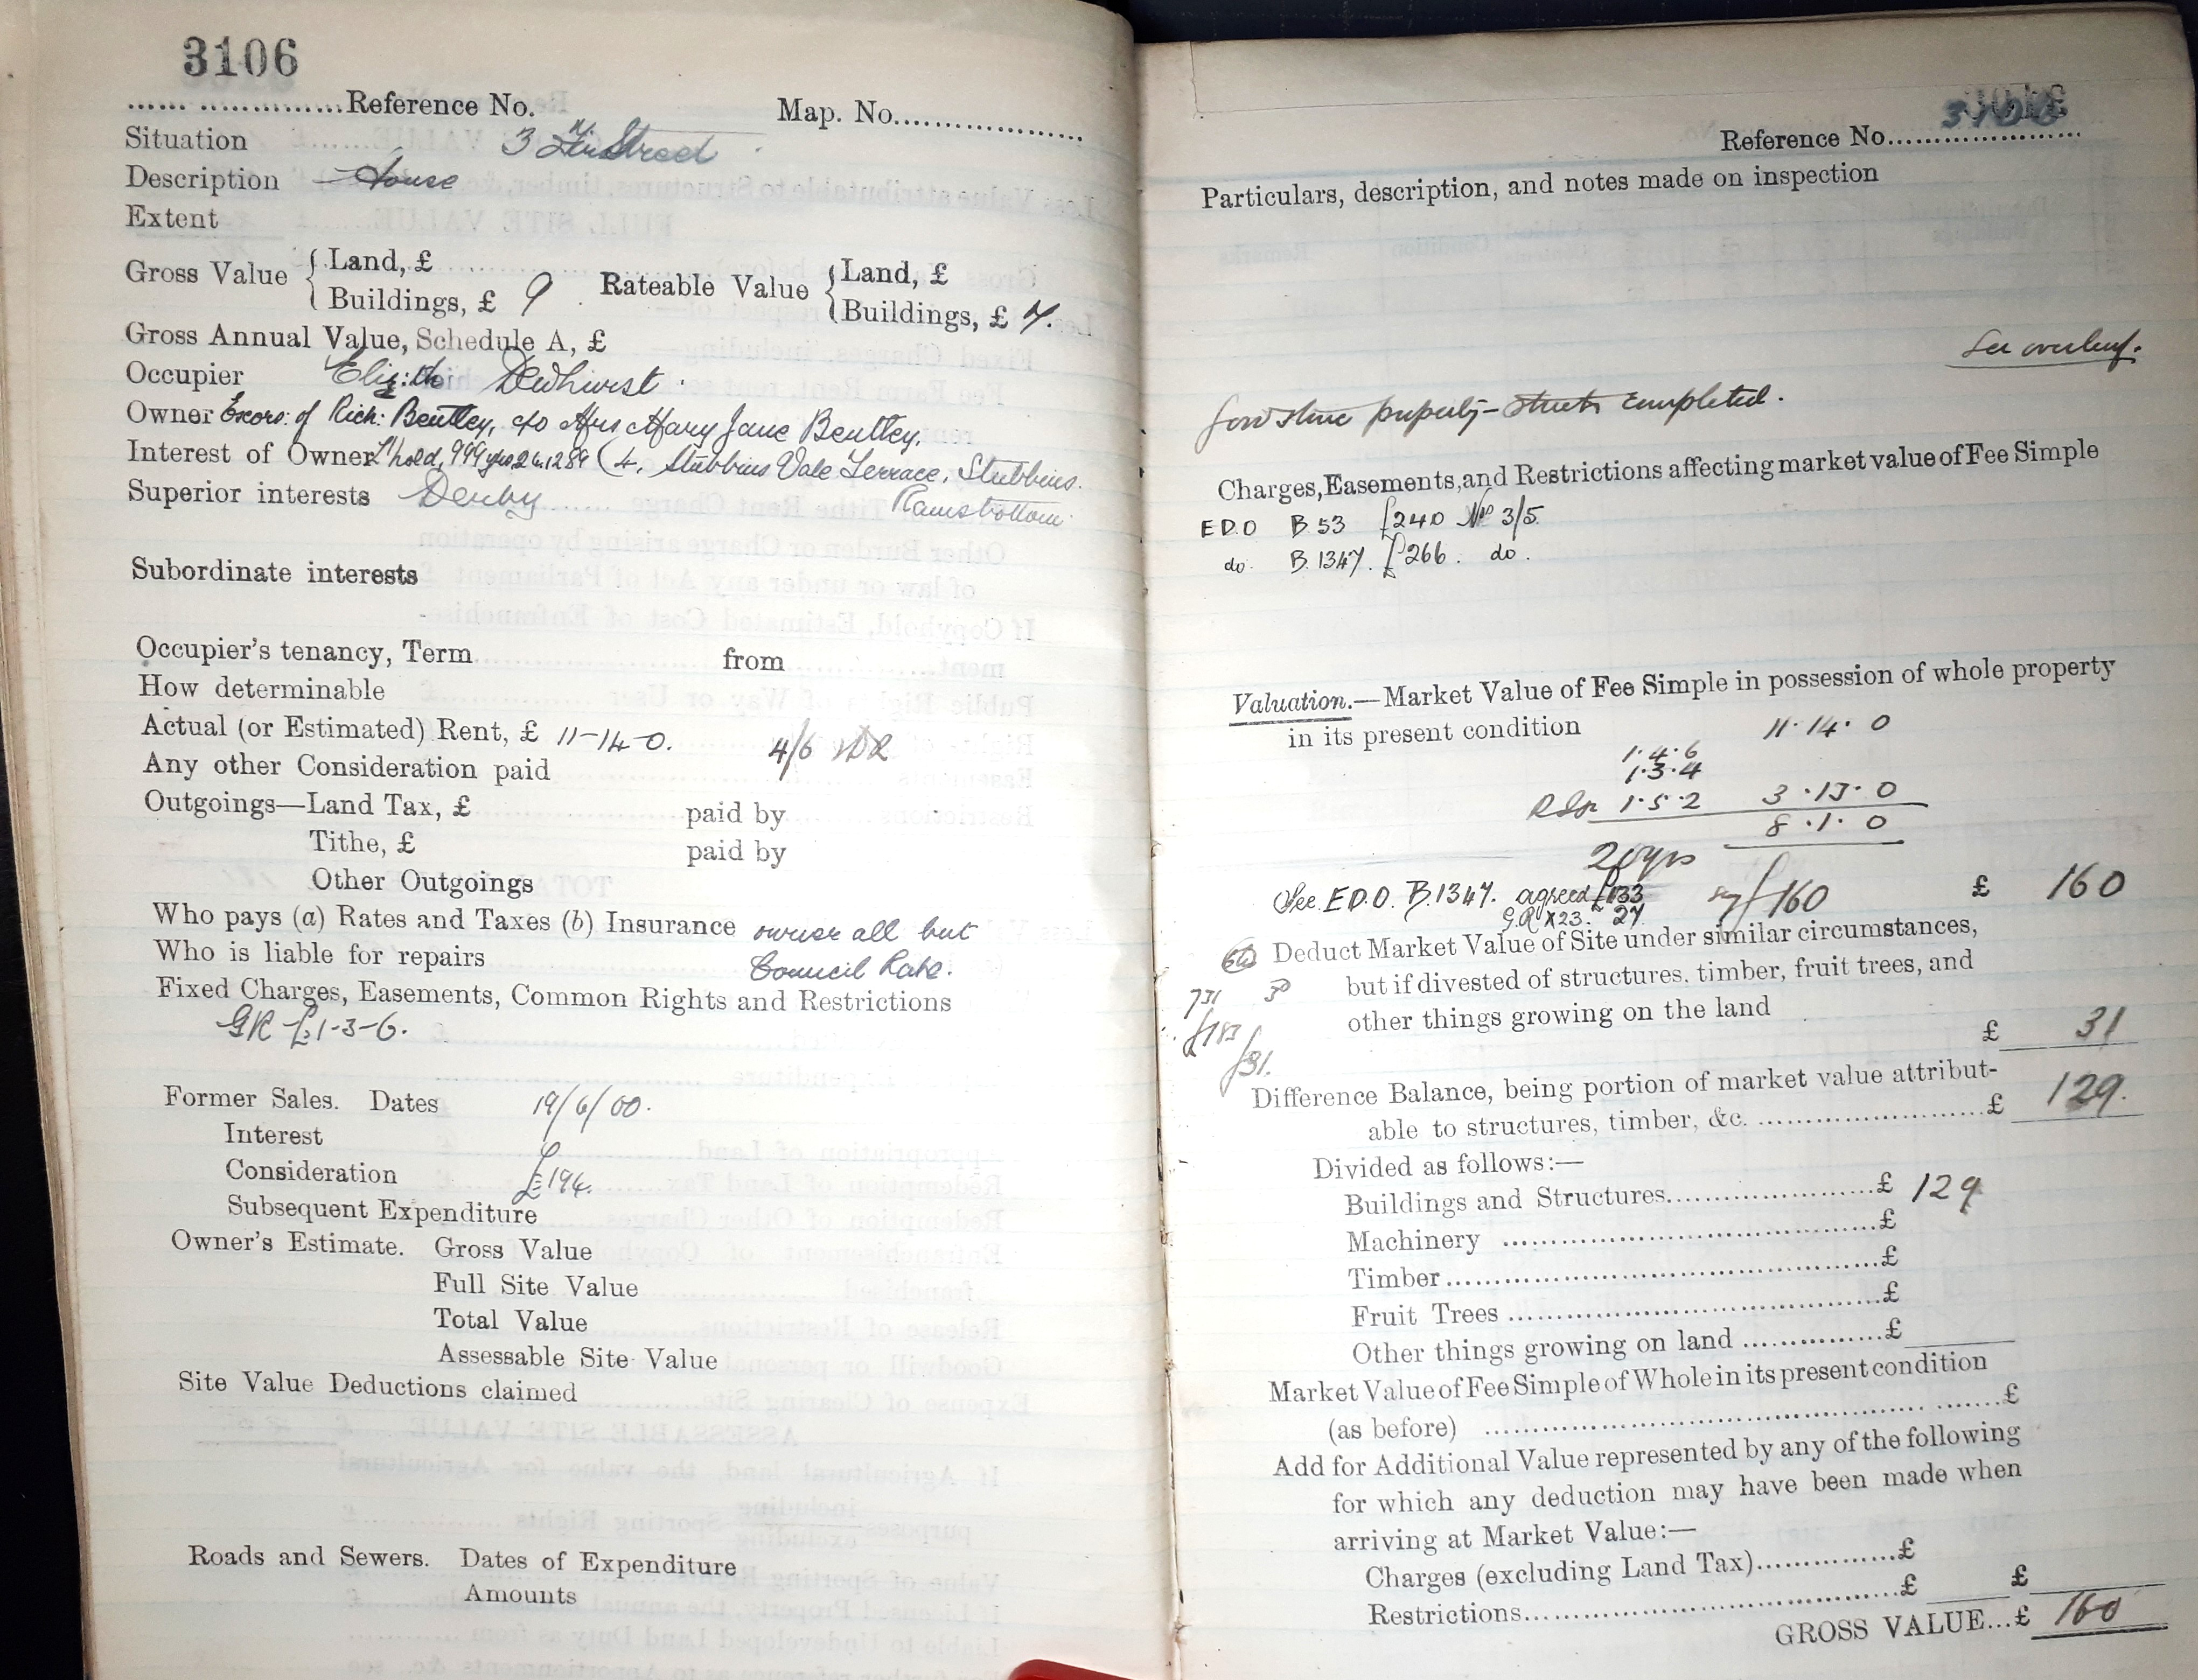 3106
Reference No. Map. No.
Situation 3 Street
Description House
Extent
Gross Value { Land, £ Rateable Value { Land, £
Buildings, £ 9 Buildings, £ 7.
Gross Annual Value, Schedule A, £
Occupier Eliz:th Dewhirst.
Owner Excors: of Rich: Bentley, c/o Mrs Mary Jane Bentley.
Interest of Owner L'hold, 999 yrs (4, Stubbins Vale Terrace, Stubbins.
Superior interests Derby Ramsbottom.
Subordinate interests
Occupier's tenancy, Term from
How determinable
Actual (or Estimated) Rent, £ 11-14-0. 4/6
Any other Consideration paid
Outgoings—Land Tax, £ paid by
Tithe, £ paid by
Other Outgoings
Who pays (a) Rates and Taxes (b) Insurance owner all but
Who is liable for repairs Council Rate.
Fixed Charges, Easements, Common Rights and Restrictions
GR £1-3-6.
Former Sales. Dates 19/6/00.
Interest
Consideration £194.
Subsequent Expenditure
Owner's Estimate. Gross Value
Full Site Value
Total Value
Assessable Site Value
Site Value Deductions claimed
Roads and Sewers. Dates of Expenditure
Amounts
Reference No. 3106
Particulars, description, and notes made on inspection
See overleaf.
property - streets completed.
Charges, Easements, and Restrictions affecting market value of Fee Simple
E.D.O B.53 £240 Nos 3/5.
do. B.1347. £266. do.
Valuation.—Market Value of Fee Simple in possession of whole property
in its present condition 11.14.0
1.4.6
1.3.4
1.5.2 3.13.0
8.1.0
20 yrs
See E.D.O. B.1347. agreed £133 say £160 £ 160
G.R X 23. 27
Deduct Market Value of Site under similar circumstances,
but if divested of structures, timber, fruit trees, and
731
other things growing on the land
£183
£ 31
£31.
Difference Balance, being portion of market value attribut-
able to structures, timber, &c. £ 129.
Divided as follows:—
Buildings and Structures £ 129
Machinery £
Timber £
Fruit Trees £
Other things growing on land £
Market Value of Fee Simple of Whole in its present condition
(as before) £
Add for Additional Value represented by any of the following
for which any deduction may have been made when
arriving at Market Value:—
Charges (excluding Land Tax) £
Restrictions £ £
GROSS VALUE...£ 160